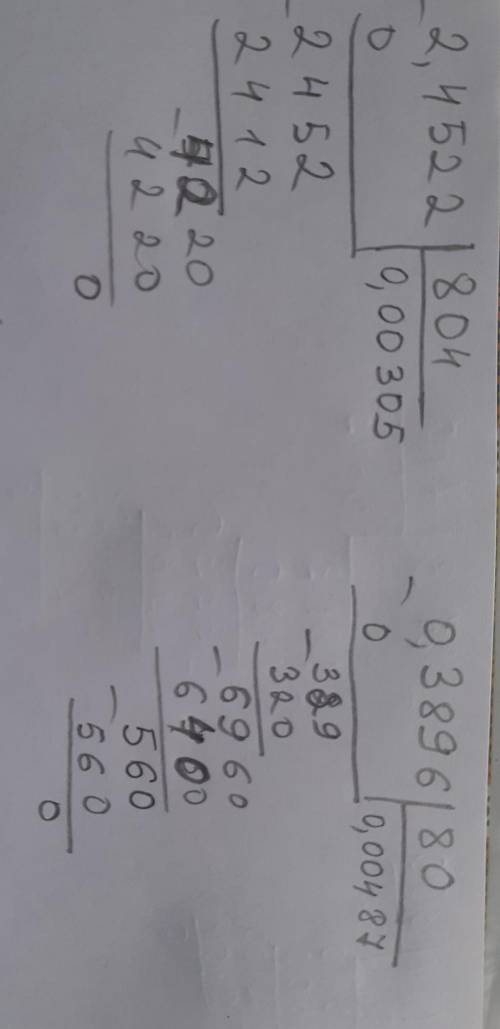 - 2,4522 | 804
0 | 0,00305
- 2452
2412
- 4020
4220
0
- 0,3896 | 80
0 | 0,00487
- 389
320
- 6960
6400
- 560
560
0